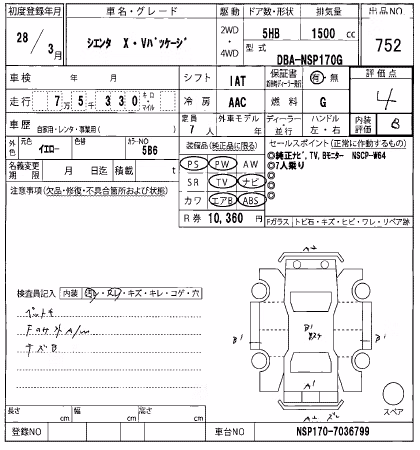 初度登録年月 車名・グレード 駆動 ドア数・形状 排気量 出品NO
28 / 3月 シエンタ X・Vパッケージ 2WD ・ 4WD 5HB 1500 cc 752
型式 DBA-NSP170G
車検 年 月 シフト IAT 保証書 有・無 評価点
走行 7万5千330キロ・マイル 冷房 AAC 燃料 G 4
車歴 自家用・レンタ・事業用( ) 定員 7人 外車モデル 年 ディーラー・並行 ハンドル 左・右 内装評価 B
外色 元色 イエロー 色替 カラーNO 5B6
装備品(純正品に限る) セールスポイント(正常に作動するもの)
名義変更期限 月 日迄 積載 t
PS PW AW ◎純正ナビ,TV,Bモニター NSCP-W64
◎7人乗り
SR TV ナビ ◎
カワ エアB ABS ◎
注意事項(欠品・修復・不具合箇所および状態)
R券 10,360 円
Fガラス トビ石・キズ・ヒビ・ワレ・リペア跡
検査員記入 内装 汚レ・スレ・キズ・キレ・コゲ・穴
A2
B1
B1
B1
A1
A2
スペア
長さ cm 幅 cm 高さ cm
登録NO 車台NO NSP170-7036799